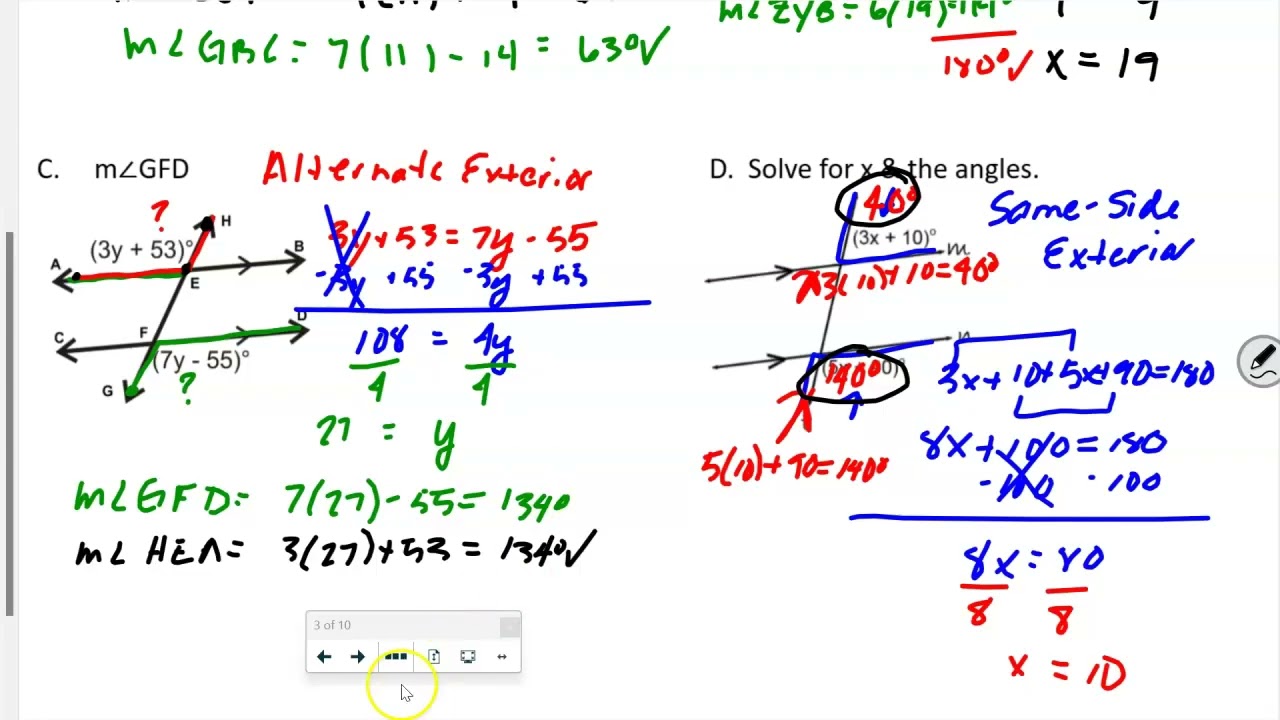 m∠GBC = 7(11) - 14 = 63° ✓
m∠ZYB = 6(19)
180° ✓ x = 19
C. m∠GFD
Alternate Exterior
?
H
(3y + 53)°
A
B
E
C
F
D
(7y - 55)°
G
?
3y + 53 = 7y - 55
-3y +55 -3y +55
108 = 4y
4 4
27 = y
m∠GFD = 7(27) - 55 = 134°
m∠HEA = 3(27) + 53 = 134° ✓
D. Solve for x & the angles.
40°
Same-Side
Exterior
(3x + 10)°
m
3(10) + 10 = 40°
n
140°
5(10) + 90 = 140°
3x + 10 + 5x + 90 = 180
8x + 100 = 180
- 100 - 100
8x = 80
8 8
x = 10
3 of 10